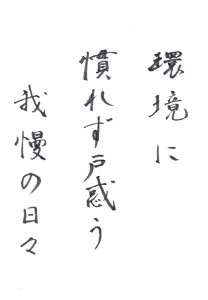 環境に
慣れず戸惑う
我慢の日々